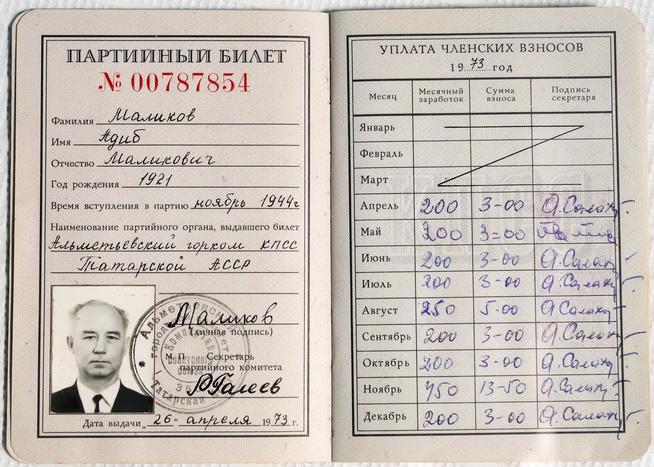 ПАРТИЙНЫЙ БИЛЕТ
№ 00787854
Фамилия Маликов
Имя Адиб
Отчество Маликович
Год рождения 1921
Время вступления в партию ноябрь 1944г
Наименование партийного органа, выдавшего билет
Альметьевский горком КПСС
Татарской АССР
Маликов
(личная подпись)
М. П. Секретарь
партийного комитета
Дата выдачи „26“ апреля 1973 г.
УПЛАТА ЧЛЕНСКИХ ВЗНОСОВ
1973 год
Месяц Месячный заработок Сумма взноса Подпись секретаря
Январь
Февраль
Март
Апрель 200 3-00
Май 200 3=00
Июнь 200 3-00
Июль 200 3-00
Август 250 5-00
Сентябрь 200 3-00
Октябрь 200 3-00
Ноябрь 450 13-50
Декабрь 200 3-00